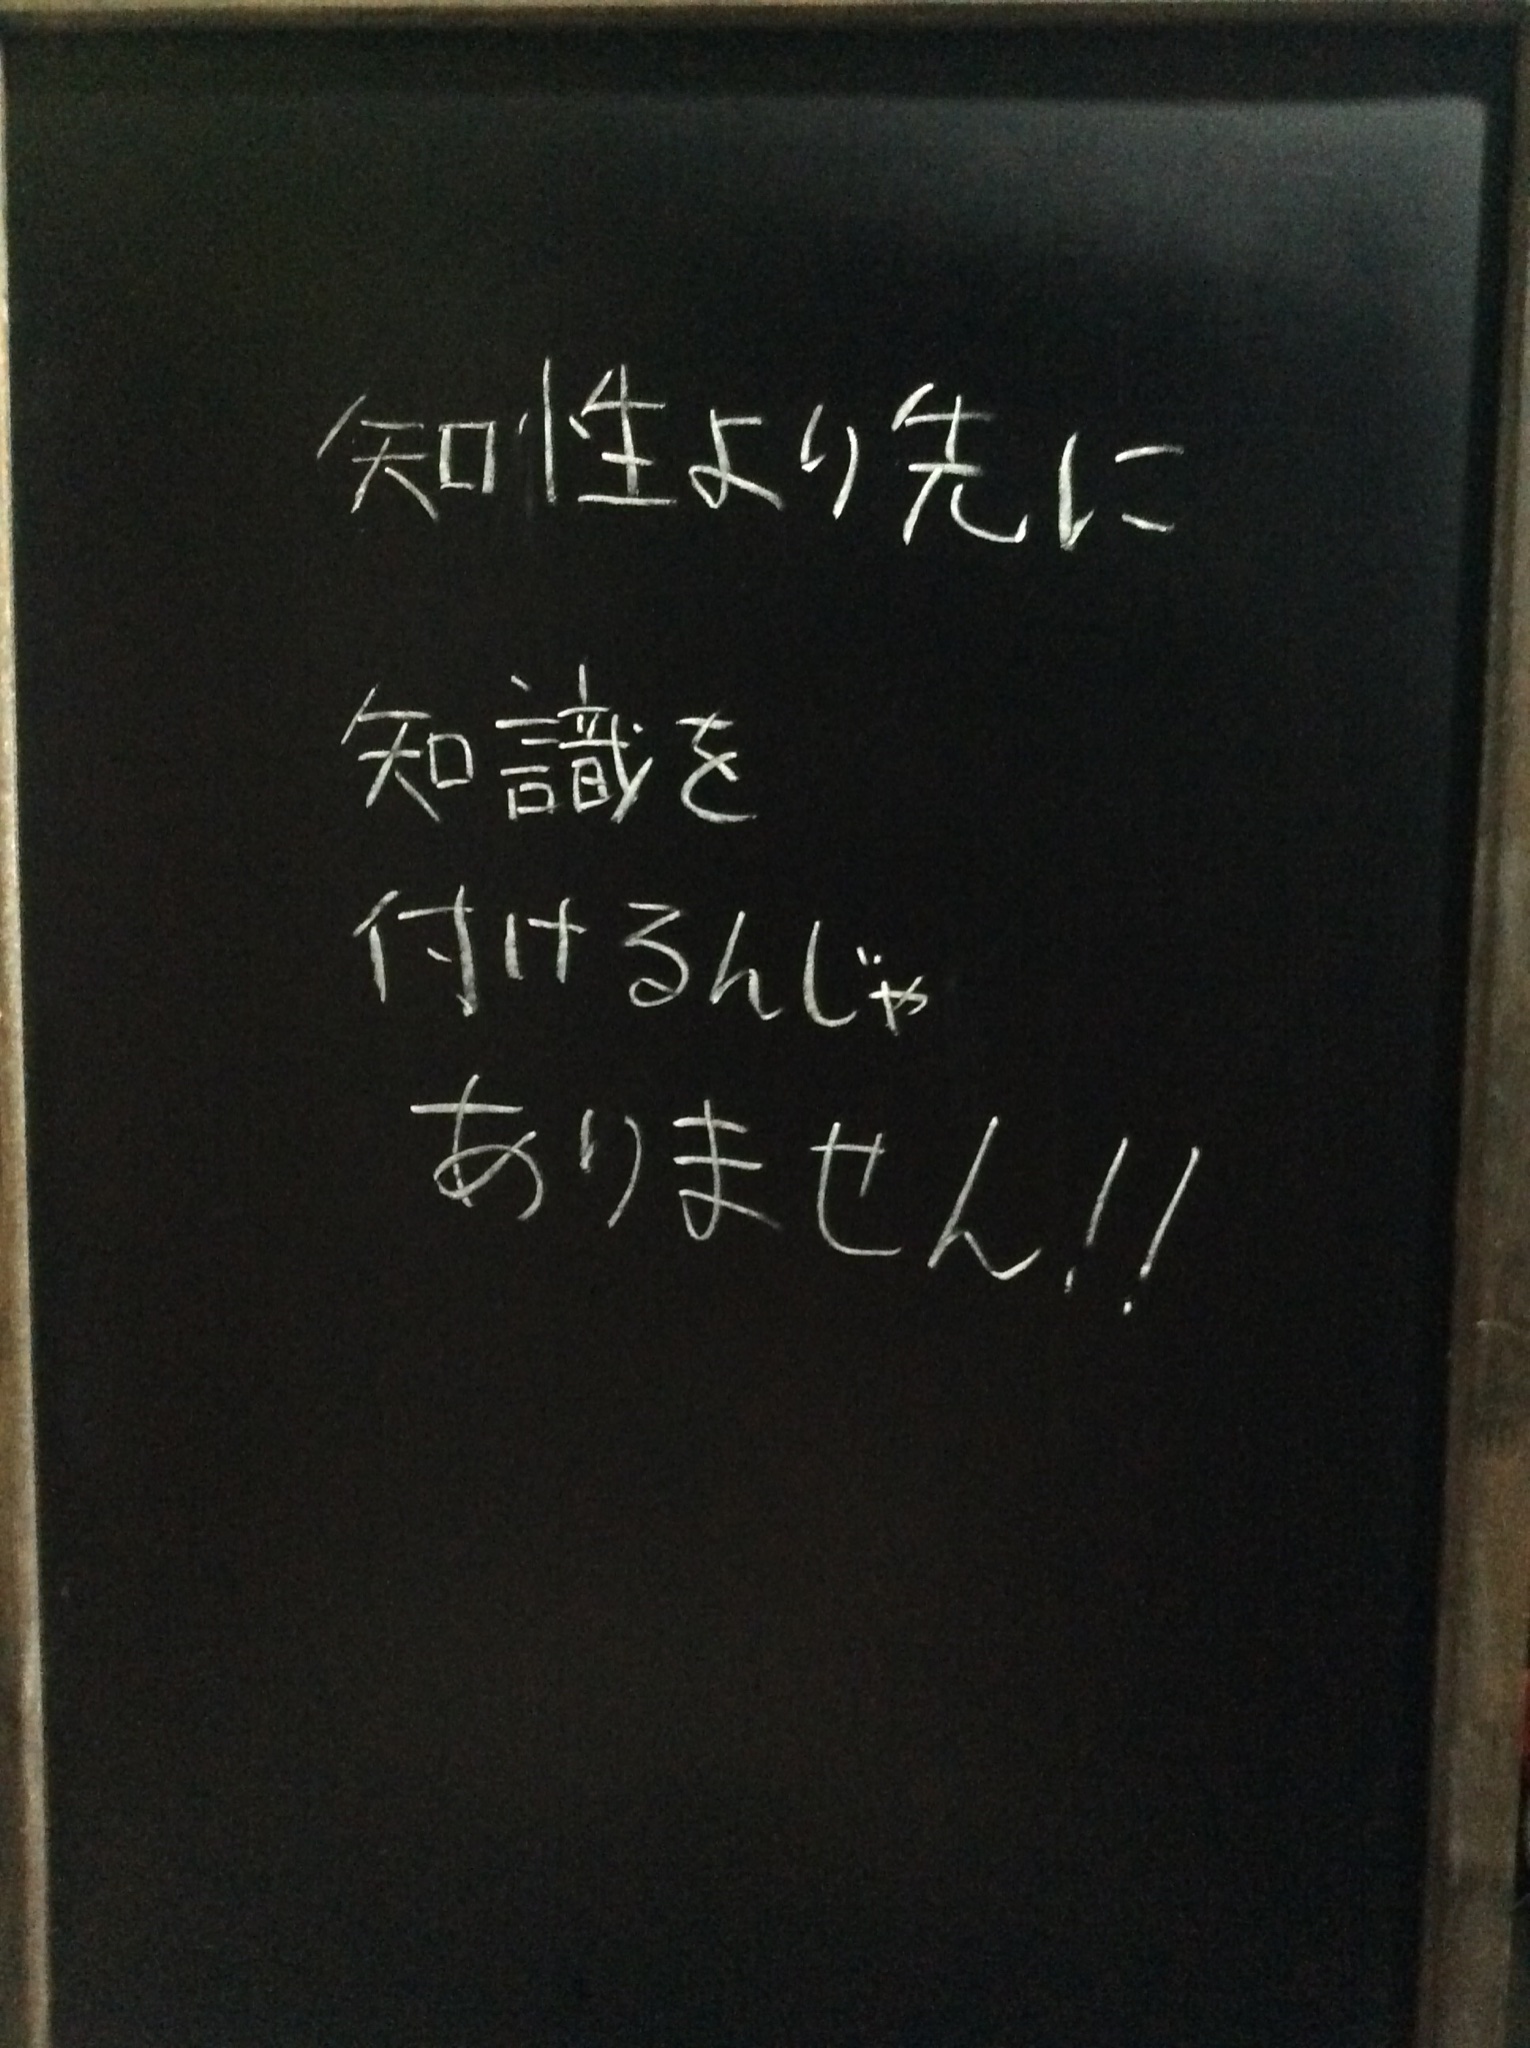 知性より先に
知識を
付けるんじゃ
ありません!!